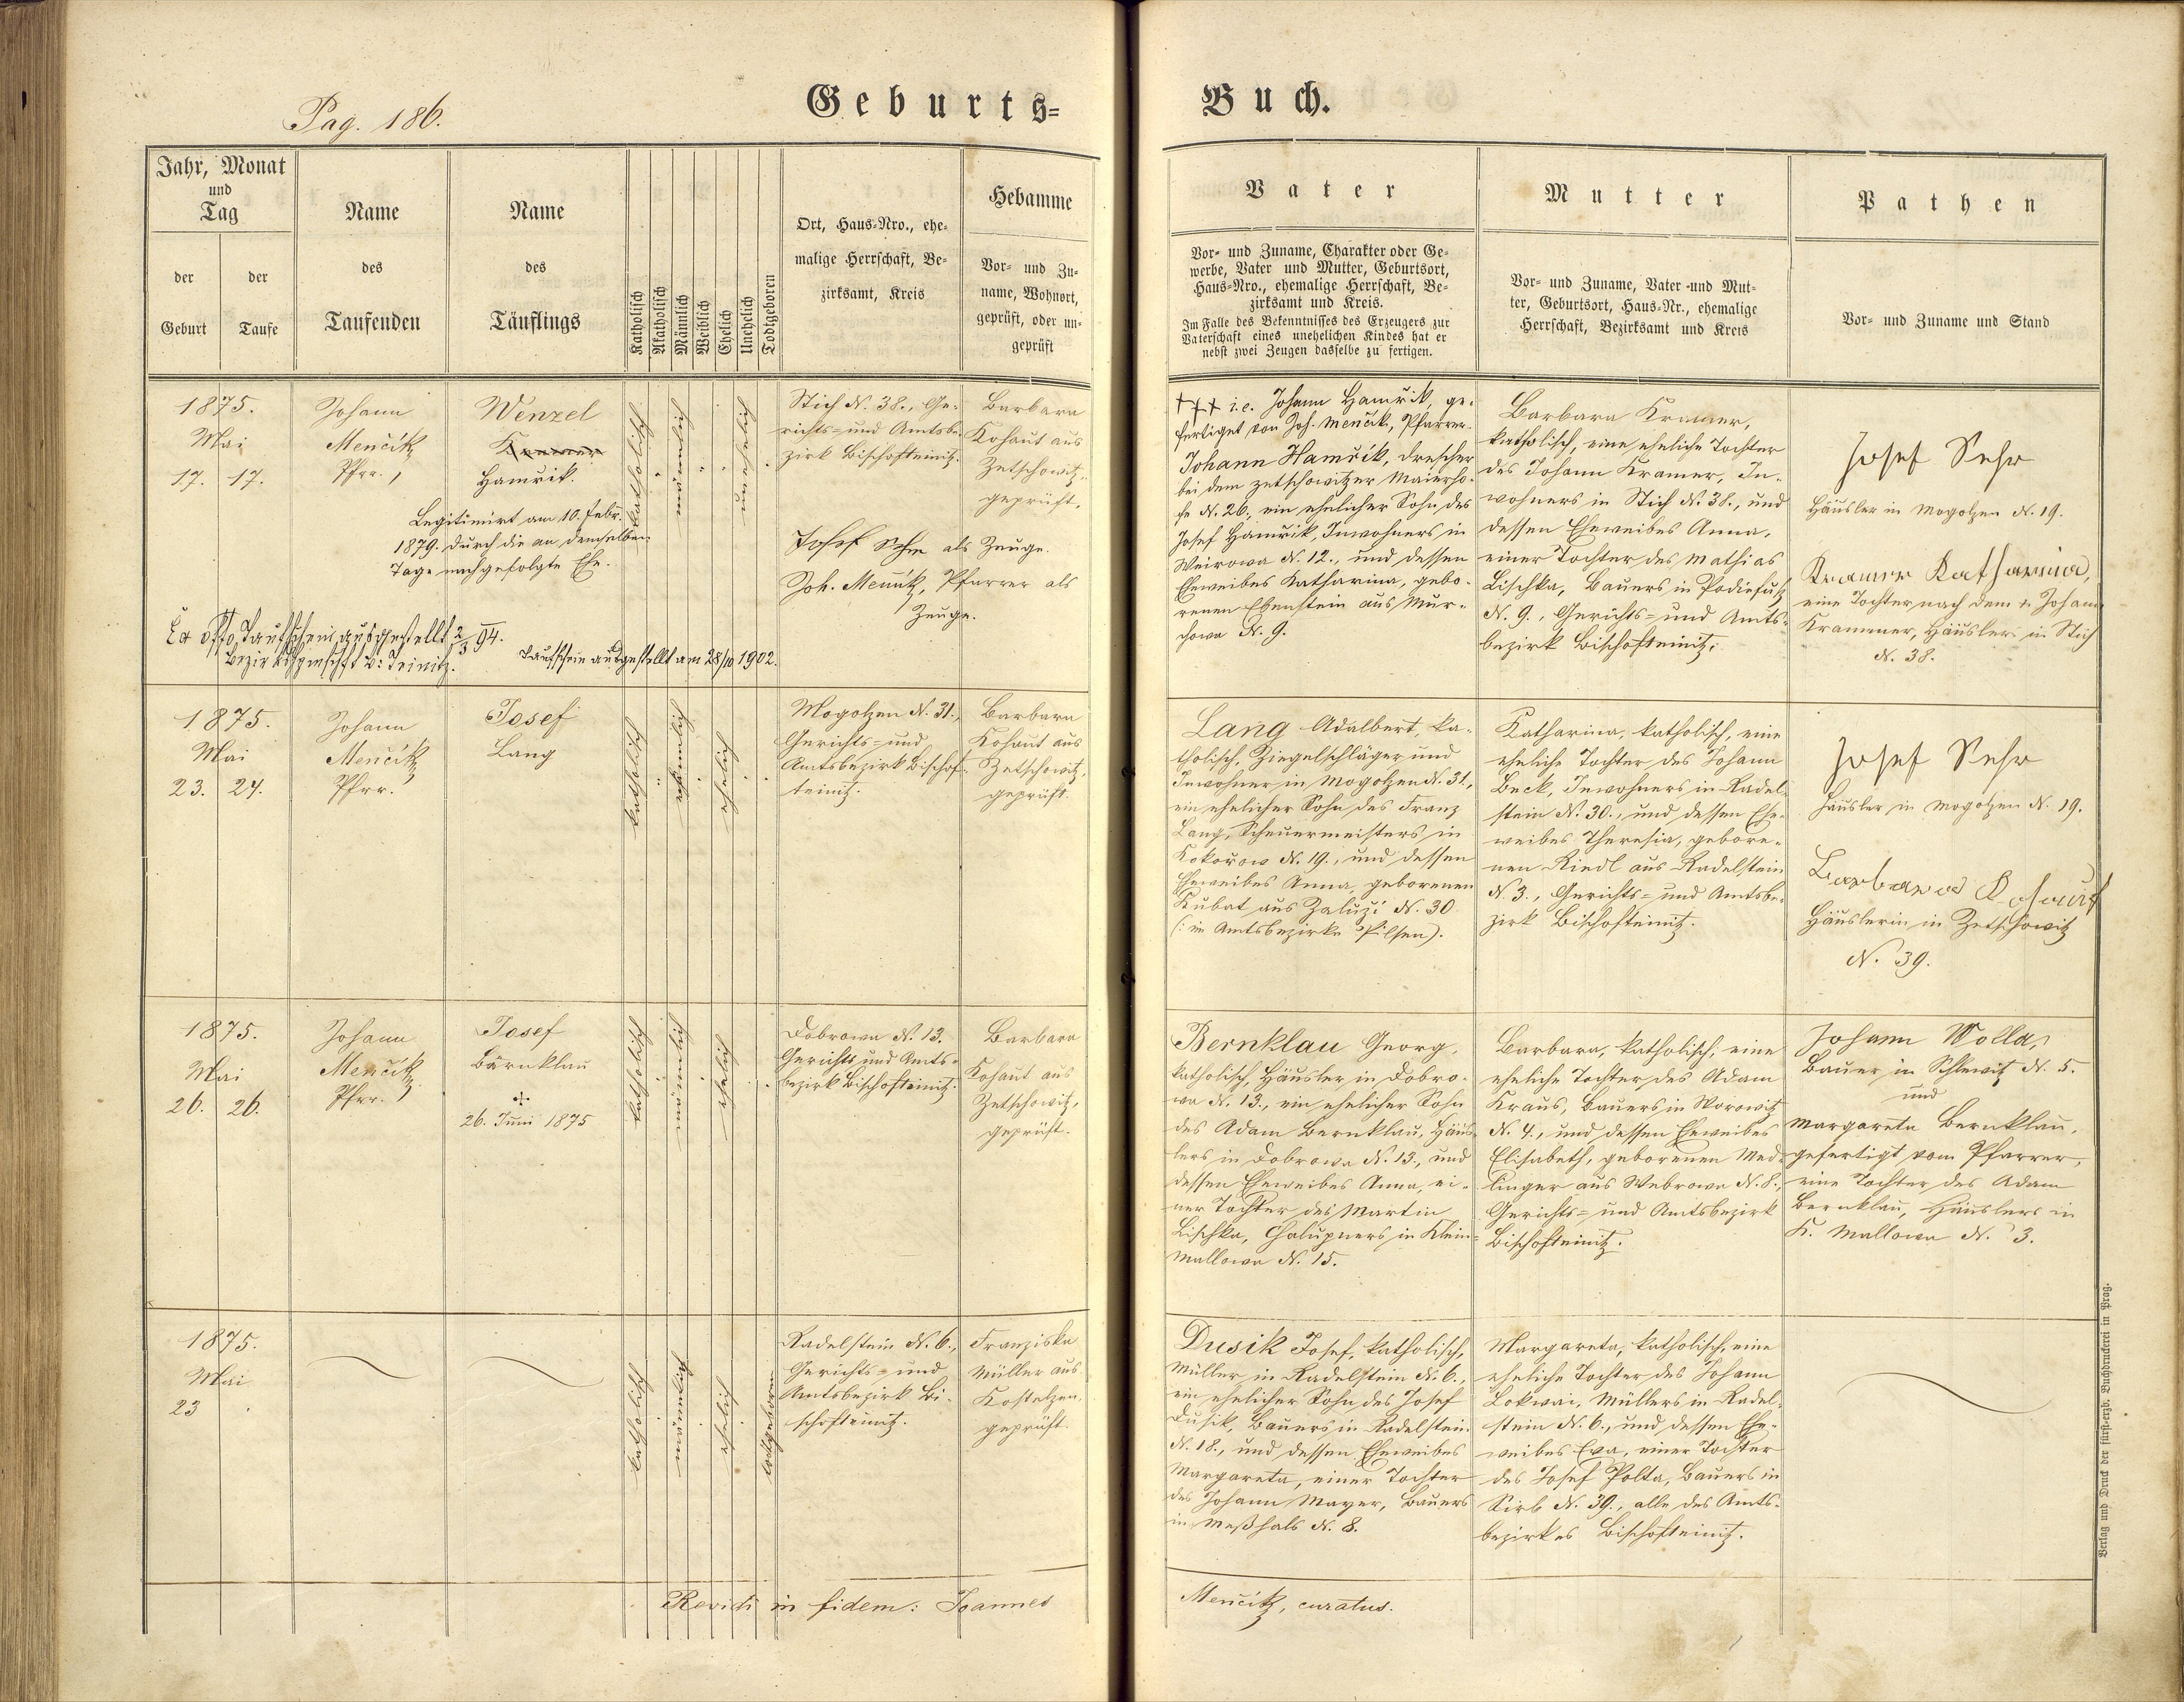 Pag. 186.
Geburts=
Buch.
Jahr, Monat
und
Tag
der
Geburt
der
Taufe
Name
des
Taufenden
Name
des
Täuflings
Katholisch
Akatholisch
Männlich
Weiblich
Ehelich
Unehelich
Todtgeboren
Ort, Haus-Nro., ehe-
malige Herrschaft, Be-
zirksamt, Kreis
Hebamme
Vor- und Zu-
name, Wohnort,
geprüft, oder un-
geprüft
Vater
Vor- und Zuname, Charakter oder Ge-
werbe, Vater und Mutter, Geburtsort,
Haus-Nro., ehemalige Herrschaft, Be-
zirksamt und Kreis.
Im Falle des Bekenntnisses des Erzeugers zur
Vaterschaft eines unehelichen Kindes hat er
nebst zwei Zeugen dasselbe zu fertigen.
Mutter
Vor- und Zuname, Vater- und Mut-
ter, Geburtsort, Haus-Nr., ehemalige
Herrschaft, Bezirksamt und Kreis
Pathen
Vor- und Zuname und Stand
1875.
Mai
17. 17.
Johann
Menčík
Pfrr.
Wenzel
Kramer
Hamřik.
Legitimirt am 10. Febr.
1879. durch die an demselben
Tage nachgefolgte Ehe.
Ex offo Taufschein ausgestellt 2/3 94.
B: Teinitz.
Taufschein ausgestellt am 28/10 1902.
katholisch
männlich
unehelich
Stich N. 38., Ge-
richts- und Amtsbe-
zirk Bischofteinitz.
Barbara
Kohaut aus
Zetschowitz,
geprüft.
Josef Sehr als Zeuge.
Joh. Menčík, Pfarrer als
Zeuge.
+++ i.e. Johann Hamřik, ge-
fertiget von Joh. Menčik, Pfarrer.
Johann Hamřik, Drescher
bei dem Zetschowitzer Maierho-
fe N. 26., ein ehelicher Sohn des
Josef Hamřik, Inwohners in
Weirowa N. 12., und dessen
Eheweibes Katharina, gebo-
renen Ebenstein aus Mur-
chowa N. 9.
Barbara Kramer,
katholisch, eine eheliche Tochter
des Johann Kramer, In-
wohners in Stich N. 38., und
dessen Eheweibes Anna,
einer Tochter des Mathias
Lischka, Bauers in Podiefusch
N. 9., Gerichts- und Amts-
bezirk Bischofteinitz.
Josef Sehr
Häusler in Mogolzen N. 19.
Kramer Katharina,
eine Tochter nach dem + Johann
Krammer, Häusler in Stich
N. 38.
1875.
Mai
23. 24.
Johann
Menčík
Pfrr.
Josef
Lang
katholisch
männlich
ehelich
Mogolzen N. 31.,
Gerichts- und
Amtsbezirk Bischof-
teinitz.
Barbara
Kohaut aus
Zetschowitz,
geprüft.
Lang Adalbert, ka-
tholisch, Ziegelschläger und
Inwohner in Mogolzen N. 31.,
ein ehelicher Sohn des Franz
Lang, Scheuermeisters in
Kokořow N. 19., und dessen
Eheweibes Anna, geborenen
Kubat aus Zaluži N. 30
(: im Amtsbezirke Pilsen).
Katharina, katholisch, eine
eheliche Tochter des Johann
Beck, Inwohners in Radel-
stein N. 30., und dessen Ehe-
weibes Theresia, gebore-
nen Riedl aus Radelstein
N. 3., Gerichts- und Amtsbe-
zirk Bischofteinitz.
Josef Sehr
Häusler in Mogolzen N. 19.
Barbara Kohaut
Häuslerin in Zetschowitz
N. 39.
1875.
Mai
26. 26.
Johann
Menčík
Pfrr.
Josef
Bärnklau
+
26. Juni 1875
katholisch
männlich
ehelich
Dobrowa N. 13.
Gerichts und Amts-
bezirk Bischofteinitz.
Barbara
Kohaut aus
Zetschowitz,
geprüft.
Bernklau Georg,
katholisch, Häusler in Dobro-
wa N. 13., ein ehelicher Sohn
des Adam Bernklau, Häus-
lers in Dobrowa N. 13., und
dessen Eheweibes Anna, ei-
ner Tochter des Martin
Lischka, Chalupners in Klein-
mallowa N. 15.
Barbara, katholisch, eine
eheliche Tochter des Adam
Kraus, Bauers in Worowitz
N. 4., und dessen Eheweibes
Elisabeth, geborenen Med-
linger aus Webrowa N. 8.,
Gerichts- und Amtsbezirk
Bischofteinitz.
Johann Wolla,
Bauer in Schlewitz N. 5.
und
Margareta Bernklau,
gefertigt vom Pfarrer,
eine Tochter des Adam
Bernklau, Häuslers in
K. Mallowa N. 3.
1875.
Mai
23
katholisch
männlich
ehelich
todtgeboren
Radelstein N. 6.,
Gerichts- und
Amtsbezirk Bi-
schofteinitz.
Franziska
Müller aus
Kostelzen,
geprüft.
Dusik Josef, katholisch,
Müller in Radelstein N. 6.,
ein ehelicher Sohn des Josef
Dusik, Bauers in Radelstein
N. 18., und dessen Eheweibes
Margareta, einer Tochter
des Johann Mayer, Bauers
in Meßhals N. 8.
Margareta, katholisch, eine
eheliche Tochter des Johann
Lokwai, Müllers in Radel-
stein N. 6., und dessen Ehe-
weibes Eva, einer Tochter
des Josef Polta, Bauers in
Sirb N. 39., alle des Amts-
bezirkes Bischofteinitz.
Revidi in fidem: Joannes
Menčík, curatus.
Verlag und Druck der fürst-erzb. Buchdruckerei in Prag.